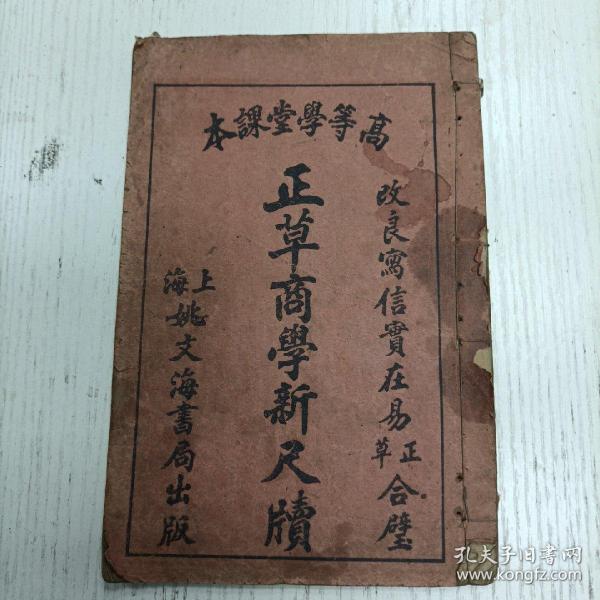 高等學堂課本
改良寫信實在易正草合璧
正草商學新尺牘
上海姚文海書局出版
孔夫子旧书网
www.kongfz.com